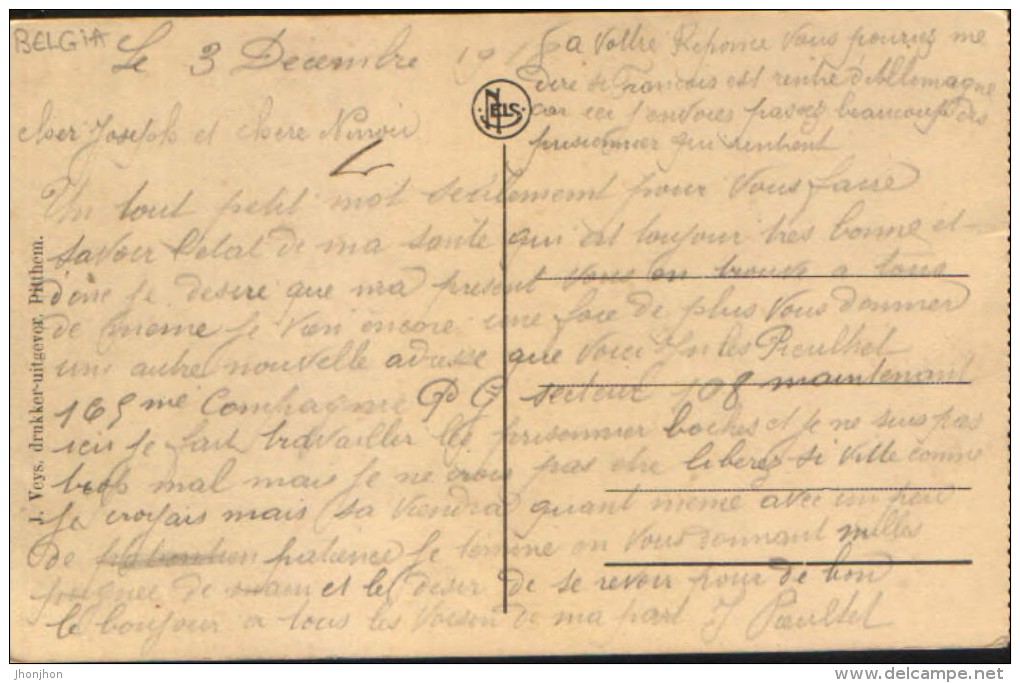 BELGIA
Le 3 Decembre 191
a Vottre Reponce Vous pouriez me
dire si Francois est rentré d'Allemagne
car ici j'en voies passez beaucoup des
prisionnier qui rentrent
NELS
cher Joseph et chere
Un tout petit mot seulement pour Vous faire
savoir l'etat de ma santé qui est toujour tres bonne et
donc je desire que ma present Vous en trouve a tous
de meme je Vien encore une foie de plus Vous donner
une autre nouvelle adresse que Voici Jules
165me Compagnie P G secteur 108 maintenant
ici je fait travailler les prisonnier boches et je ne suis pas
trop mal mais je ne crois pas etre liberez si Vitte comme
je croyais mais sa Viendra quant meme avec un peu
de patience je termine en Vous donnant milles
poignee de main et le desir de se revoir pour de bon
le bonjour a tous les Voisin de ma part J
J. Veys. drukker-uitgever, Pitthem.
jhonjhon
www.delcampe.net